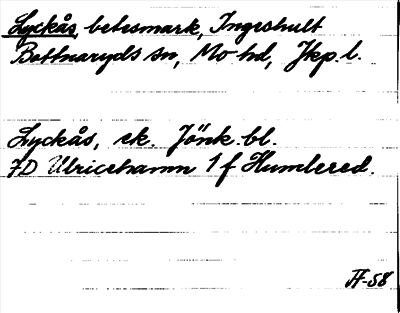 Lyckås, betesmark, Ingeshult
Bottnaryds sn, Mo hd, Jkp. l.
Lyckås, ek. Jönk. bl.
7D Ulricehamn 1 f Humlered.
FF-58